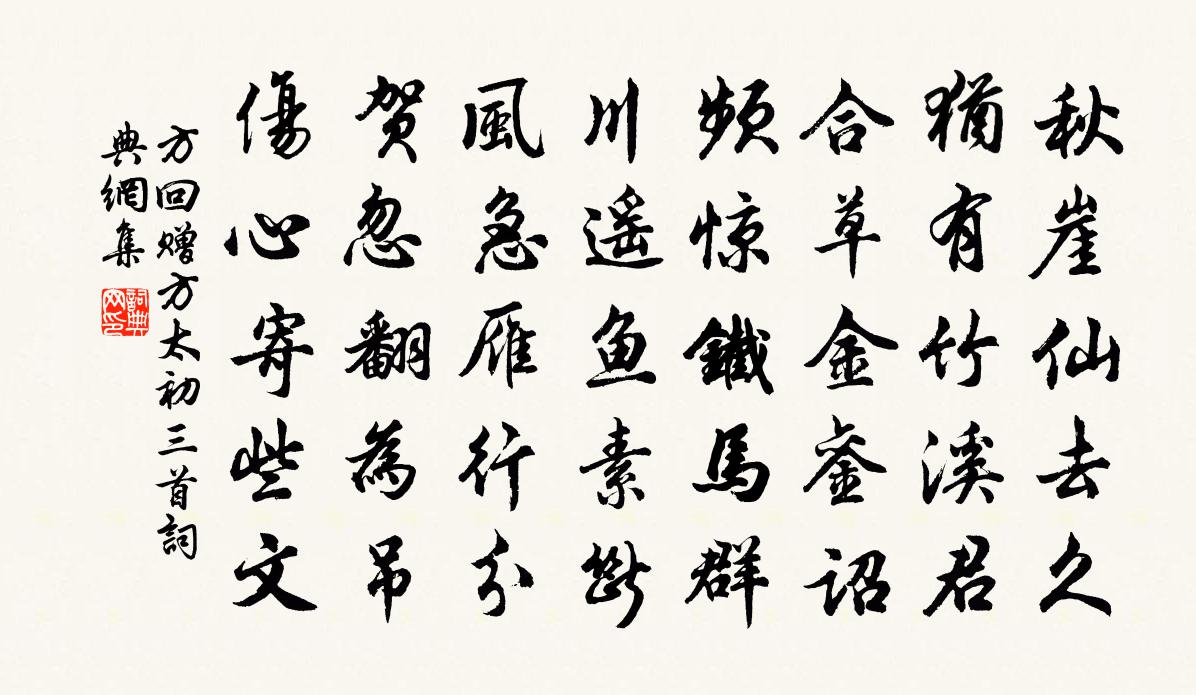 秋崖仙去久
猶有竹溪君
合草金鑾詔
頻惊鐵馬群
川遥鱼素斷
風急雁行分
贺忽翻為吊
傷心寄些文
方回赠方太初三首詞
典網集
詞典网印